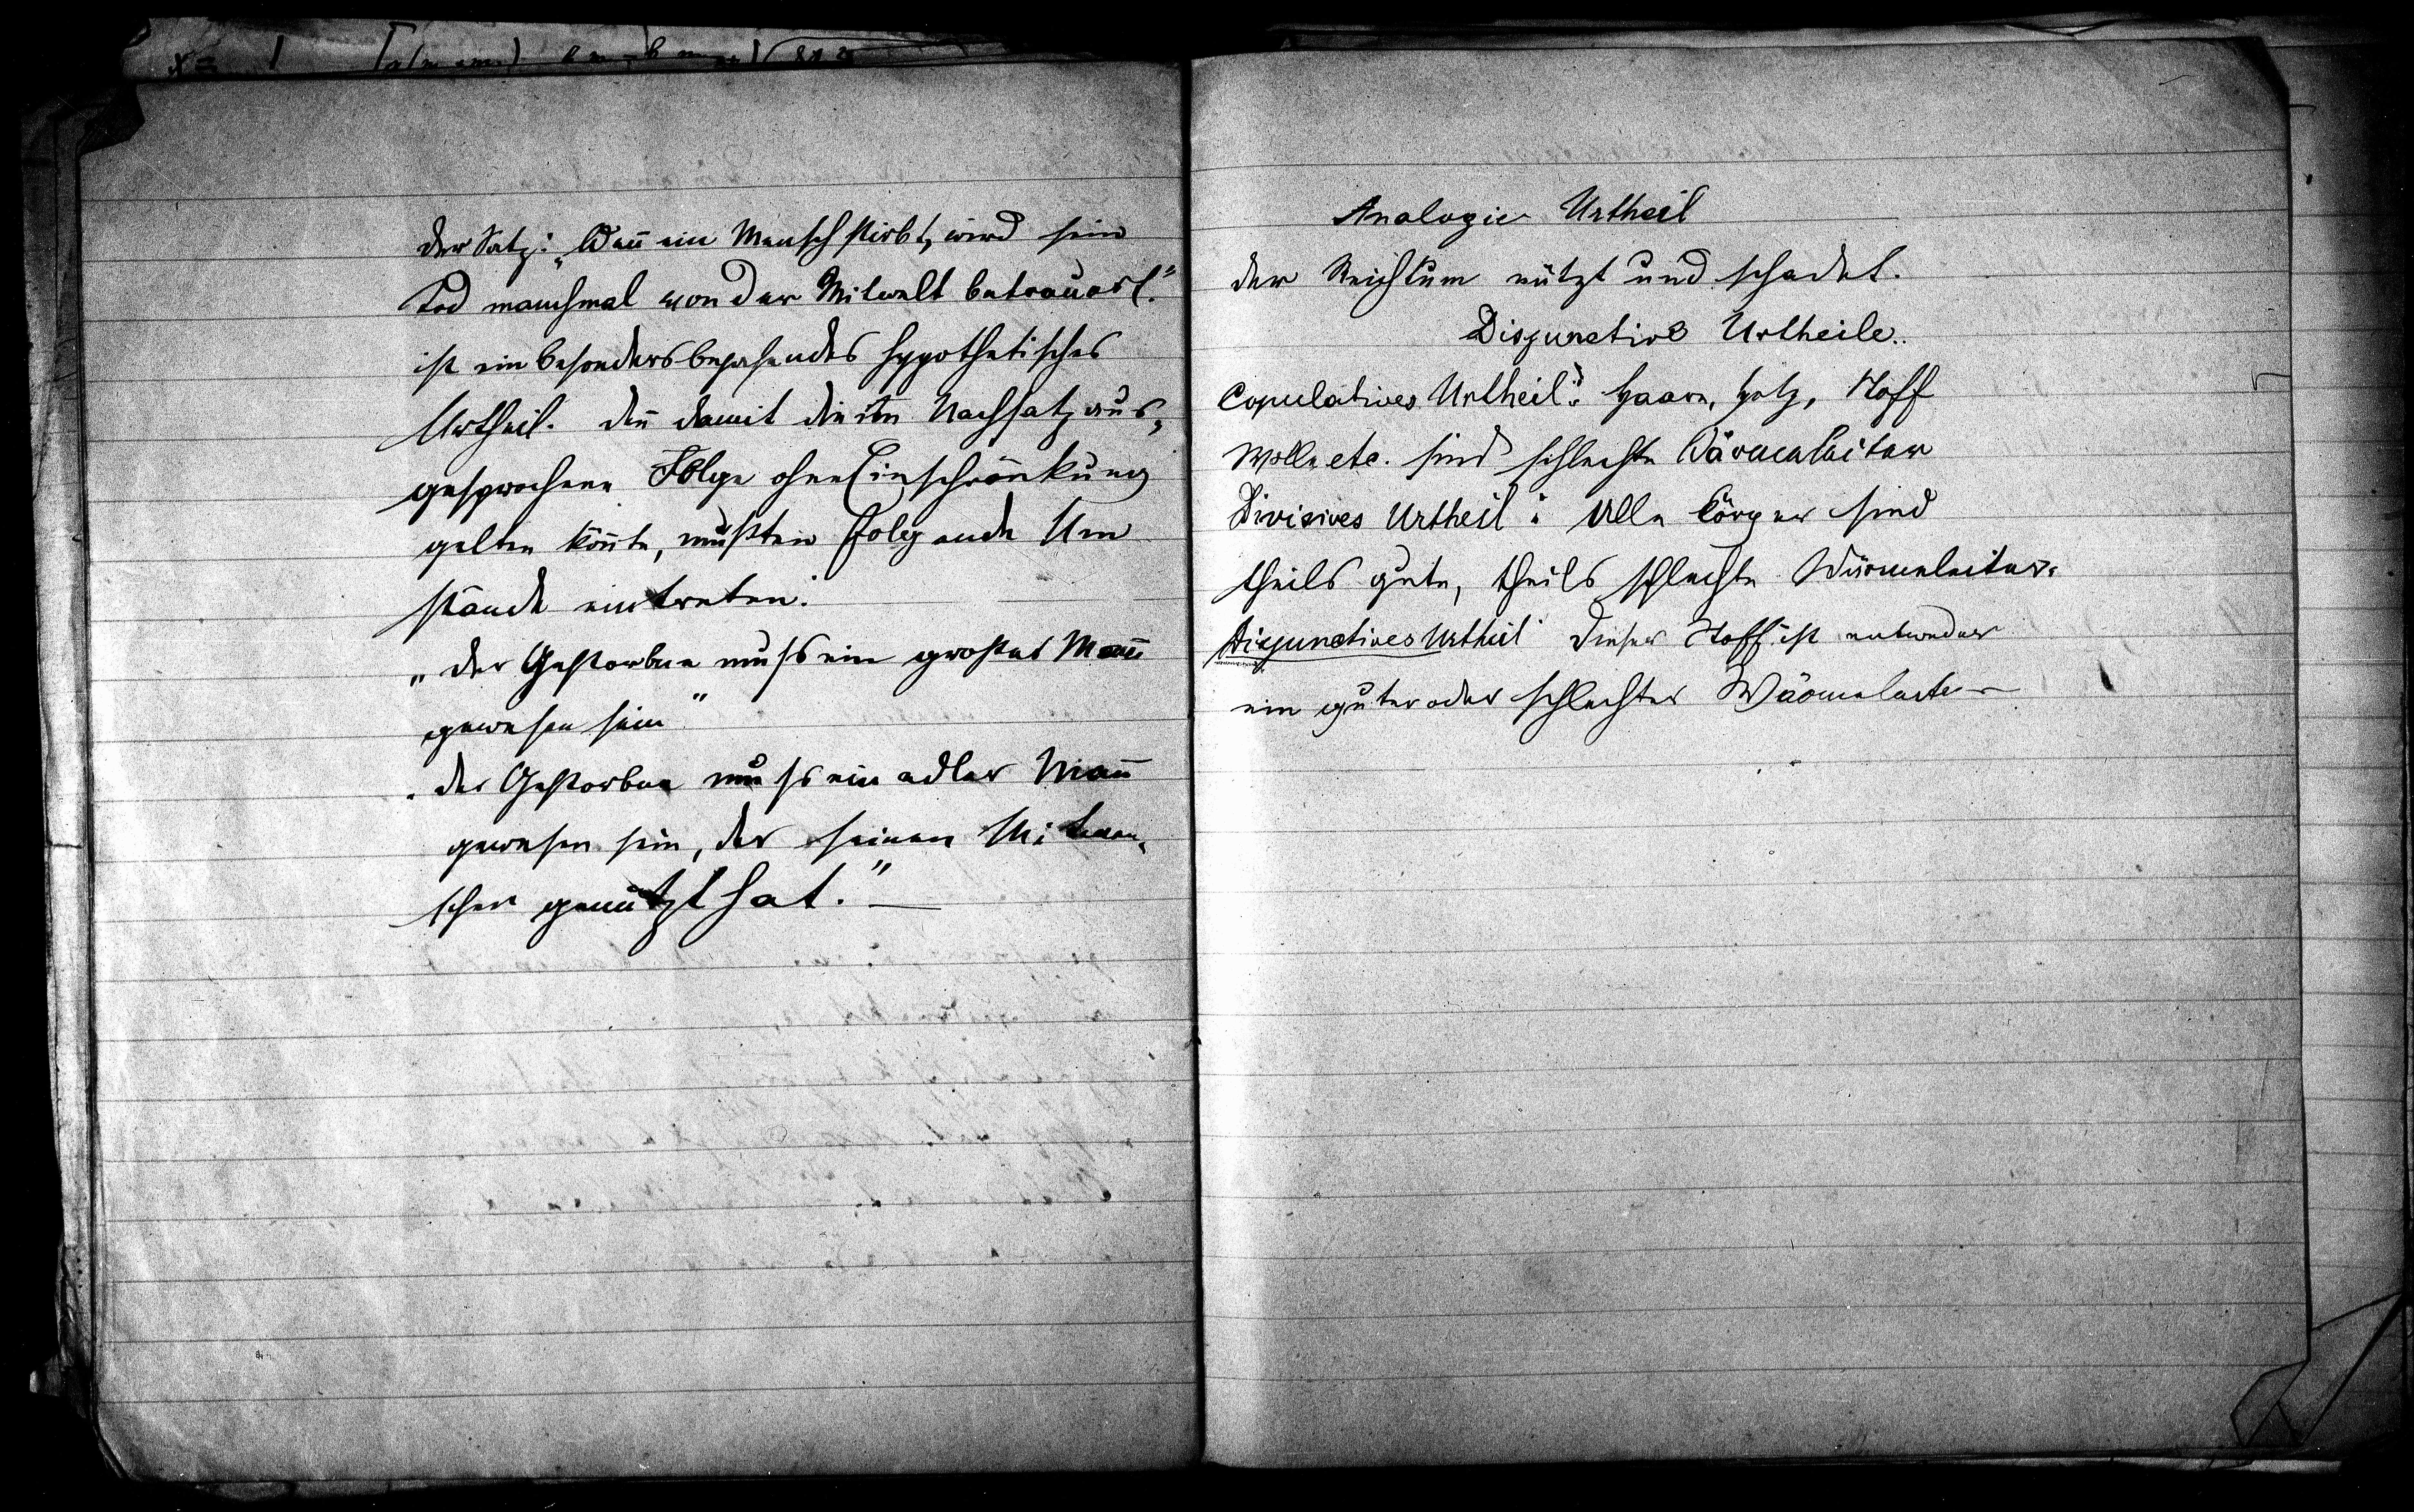 der Satz: „Wen̄ ein Mensch stirbt, wird sein
Tod manchmal von der Mitwelt betrauert."
ist ein besonders bejahendes hypothetisches
Urtheil. den̄ damit die im Nachsatz aus„
gesprochene Folge ohne Einschränkung
gelten kön̄te, mußten folgende Um
stände eintreten:
„der Gestorbene muß ein großer Man̄
gewesen sein"
„der Gestorbene muß ein edler Man̄
gewesen sein, der seinen Mitmen„
schen genützt hat." —
Analogie Urtheil
der Reichtum nützt und schadet.
Disjunctive Urtheile.
Copulatives Urtheil: Haare, Holz, Stoff
Wolle etc. sind schlechte Wärmeleiter
Divisives Urtheil: Alle Körper sind
theils gute, theils schlechte Wärmeleiter.
Disjunctives Urtheil Dieser Stoff ist entweder
ein guter oder schlechter Wärmeleiter